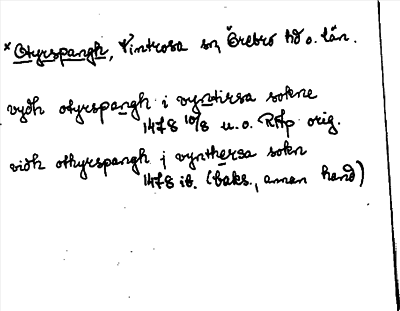 *Otyrspangh, Vintrosa sn, Örebro hd o. län.
vydh otyrspangh i vyntirsa sokne
1478 10/8 u.o. RAp orig.
vidh othyrspangh j vynthersa sokn
1478 ib. (baks., annan hand)